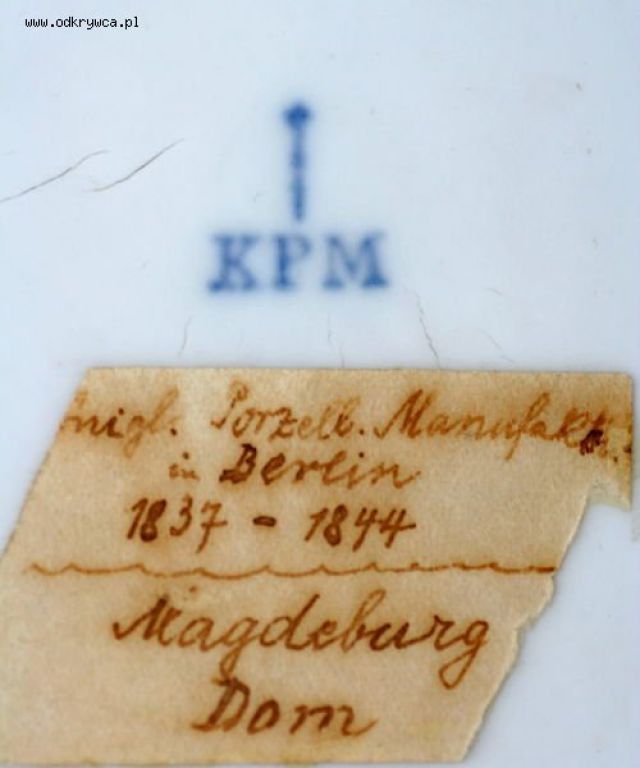 www.odkrywca.pl
KPM
nigl. Porzell. Manufakt.
in Berlin
1837 - 1844
Magdeburg
Dom